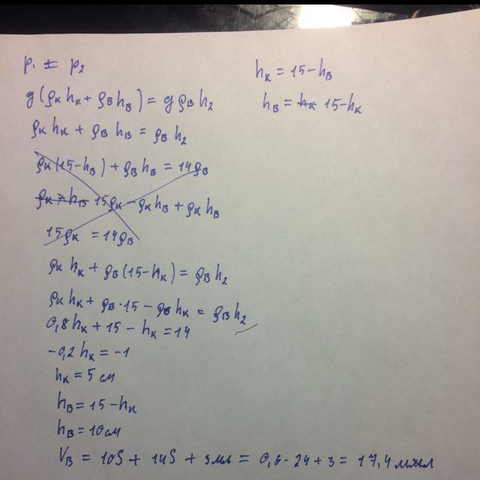 p₁ = p₂
g(ρк hк + ρв hв) = g ρв h₂
ρк hк + ρв hв = ρв h₂
ρк (15 - hв) + ρв hв = 14ρв
15ρк - ρк hв + ρк hв
15ρк = 14ρв
ρк hк + ρв (15 - hк) = ρв h₂
ρк hк + ρв · 15 - ρв hк = ρв h₂
0,8hк + 15 - hк = 14
-0,2 hк = -1
hк = 5 см
hв = 15 - hк
hв = 10 см
Vв = 10S + 14S + 3мл = 0,6 · 24 + 3 = 17,4 мл
hк = 15 - hв
hв = 15 - hк